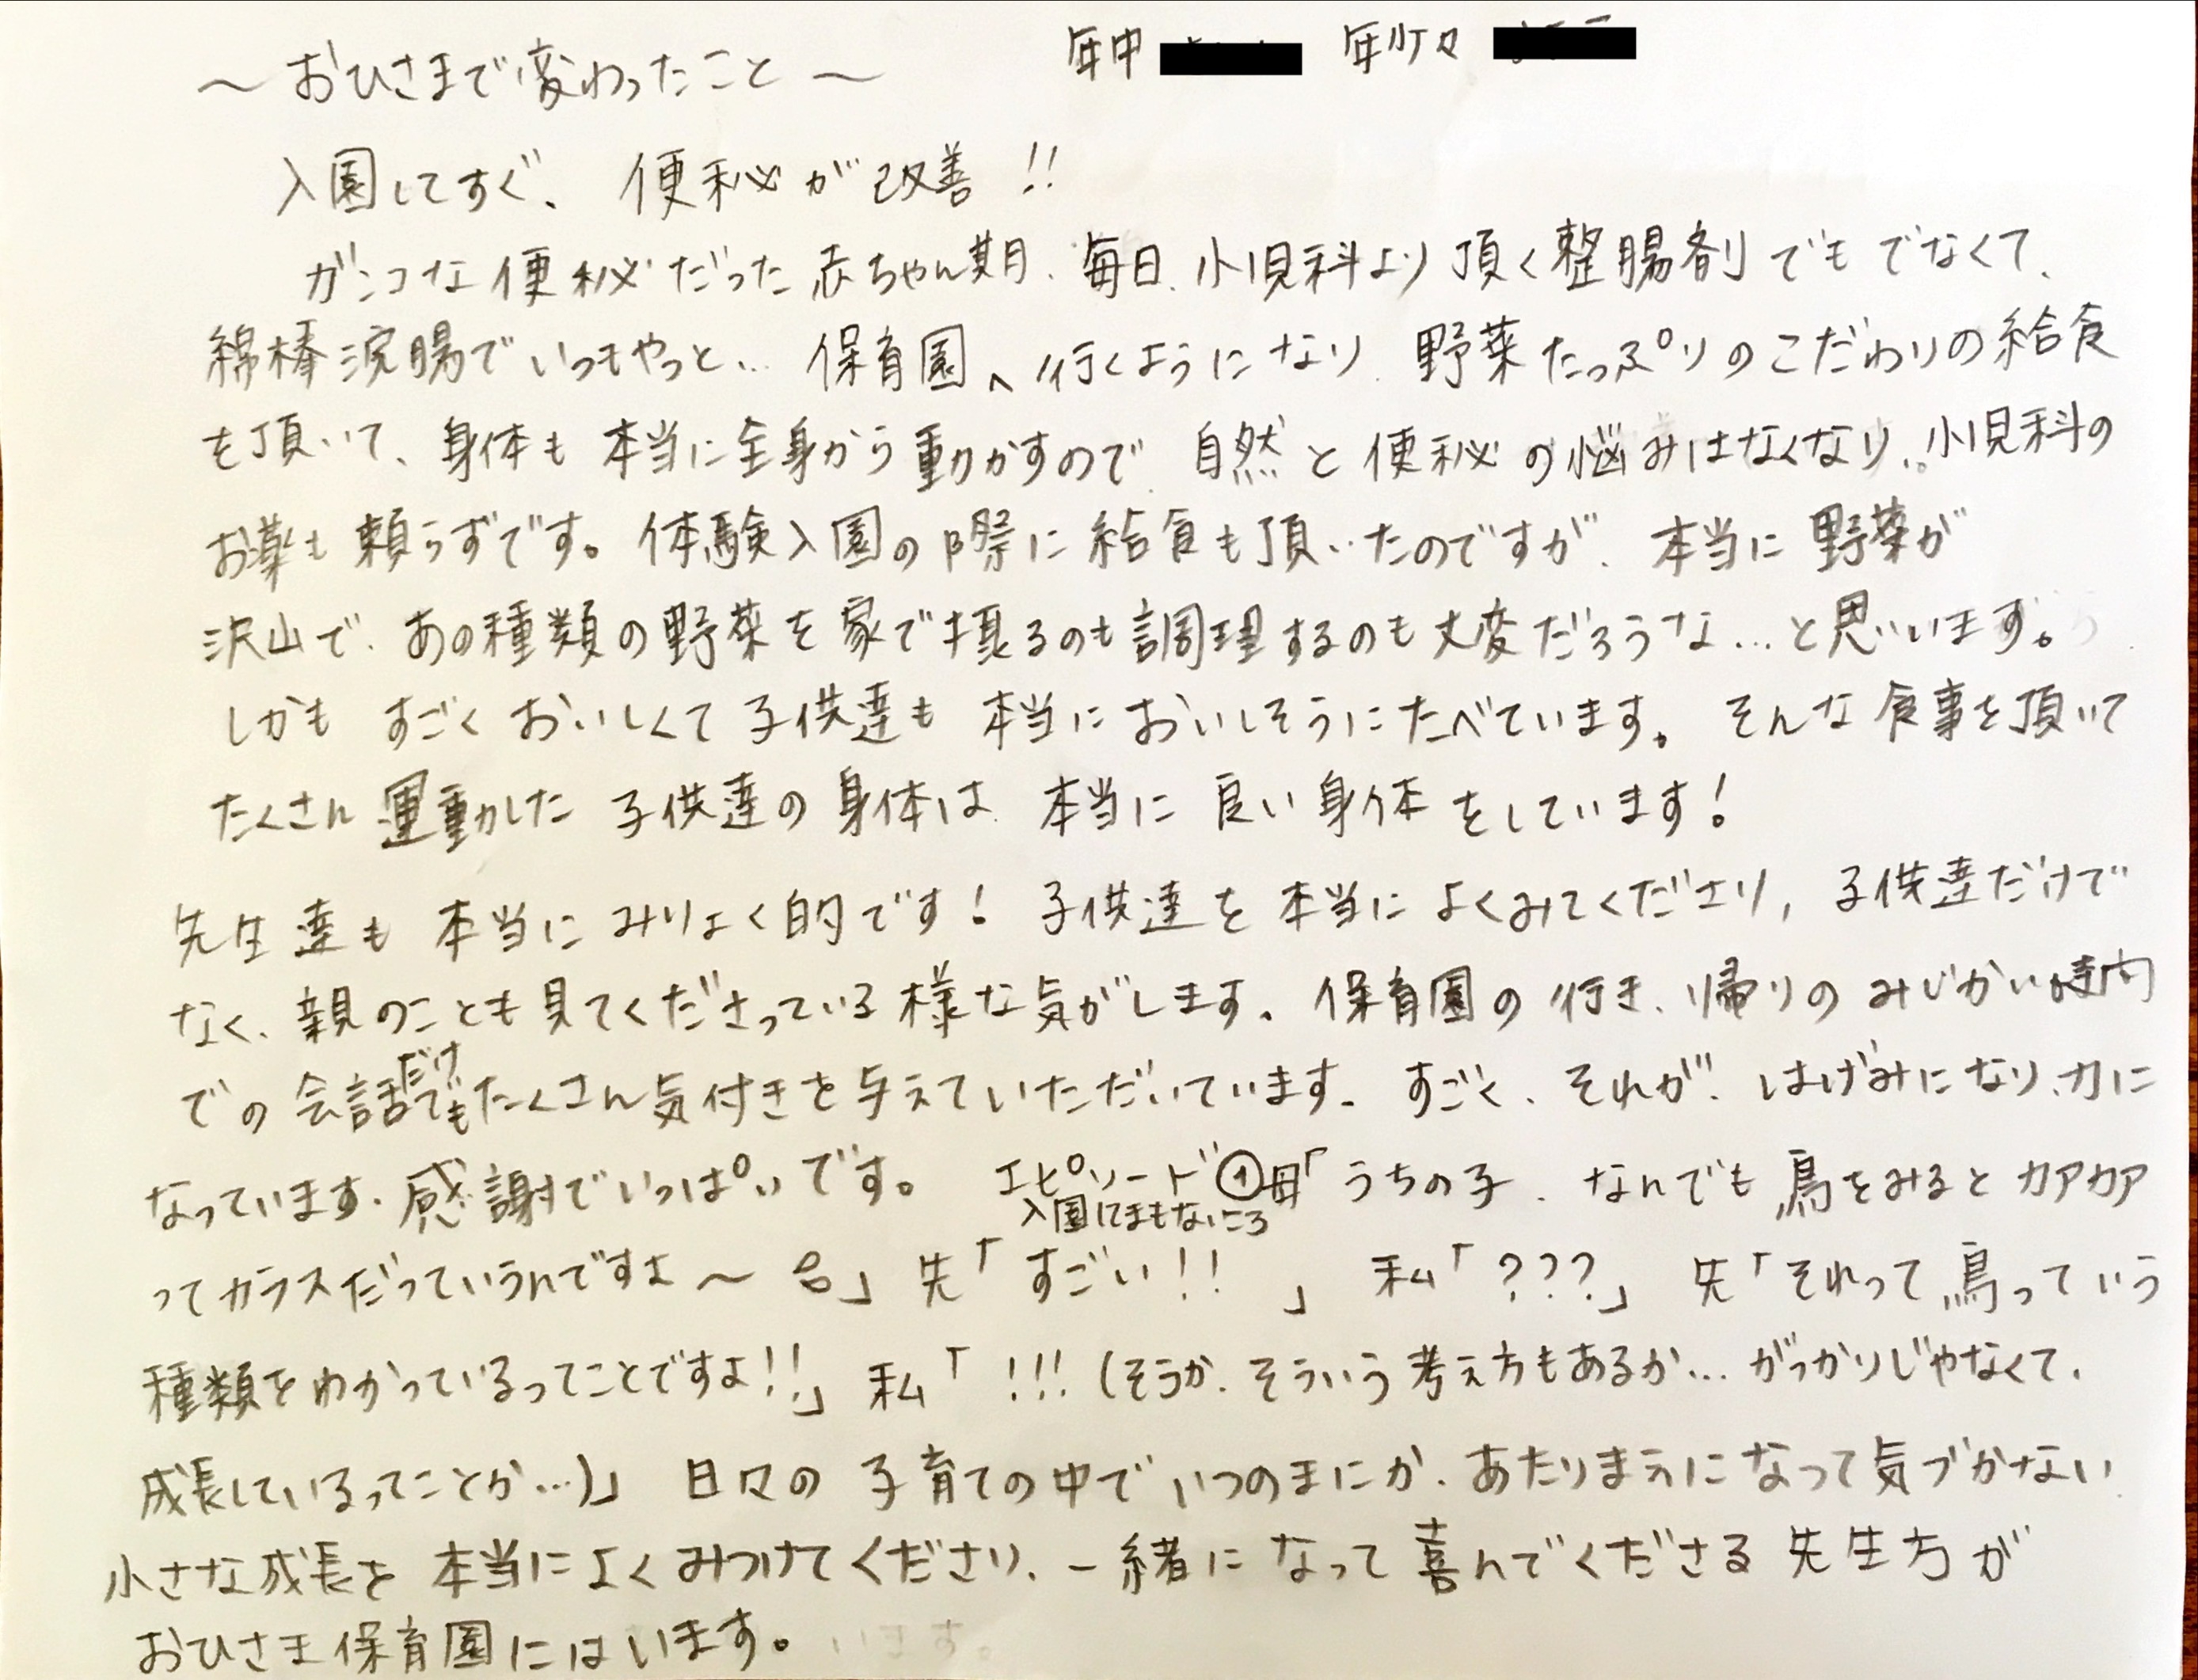 〜おひさまで変わったこと〜 年中 年少々
入園してすぐ、便秘が改善!!
ガンコな便秘だった赤ちゃん期、毎日、小児科より頂く整腸剤でもでなくて、
綿棒浣腸でいつもやっと… 保育園へ行くようになり、野菜たっぷりのこだわりの給食
を頂いて、身体も本当に全身から動かすので、自然と便秘の悩みはなくなり、小児科の
お薬も頼らずです。体験入園の際に給食も頂いたのですが、本当に野菜が
沢山で、あの種類の野菜を家で摂るのも調理するのも大変だろうな…と思います。
しかも すごくおいしくて子供達も本当においしそうにたべています。そんな食事を頂いて
たくさん運動した子供達の身体は、本当に良い身体をしています!
先生達も本当にみりょく的です!子供達を本当によくみてくださり、子供達だけで
なく、親のことも見てくださっている様な気がします。保育園の行き、帰りのみじかい時間
での会話だけでもたくさん気付きを与えていただいています。すごく、それが、はげみになり、力に
なっています。感謝でいっぱいです。 エピソード① 母「うちの子、なんでも鳥をみるとカアカア
入園にまもないころ
ってカラスだっていうんですよ〜」先「すごい!!」私「???」先「それって、鳥っていう
種類をわかっているってことですよ!!」私「!!!(そうか、そういう考え方もあるか… がっかりじゃなくて、
成長しているってことか…)」日々の子育ての中でいつのまにか、あたりまえになって気づかない
小さな成長を本当によくみつけてくださり、一緒になって喜んでくださる先生方が
おひさま保育園にはいます。